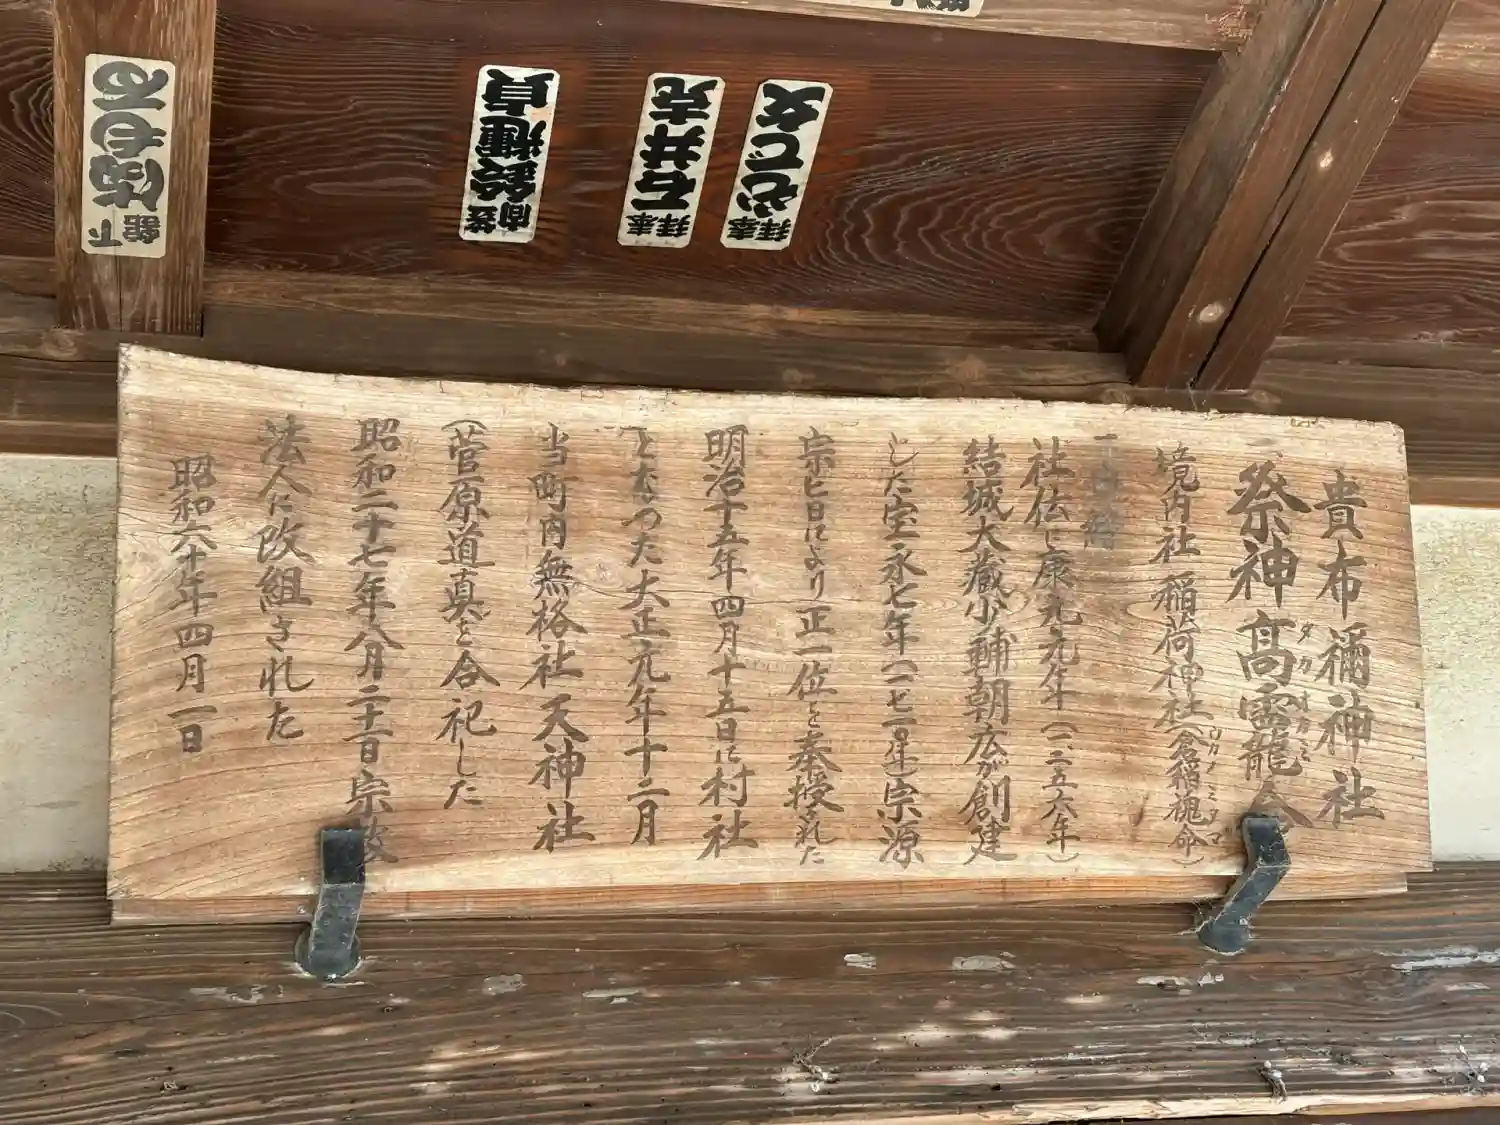 貴布禰神社
祭神 高龗龍命
タカオカミ
境内社 稲荷神社(倉稲魂命)
ウカノミタマ
一、由緒
社伝に康元元年(一二五六年)
結城大蔵少輔朝広が創建
した宝永七年(一七一〇年)宗源
宗ヒ日により正一位を奉授された
明治十五年四月十五日に村社
となった大正元年十二月
当町内無格社天神社
(菅原道真を合祀した
昭和二十七年八月二十一日宗教
法人に改組された
昭和六十年四月一日
下館
拝奉
石井克
拝奉